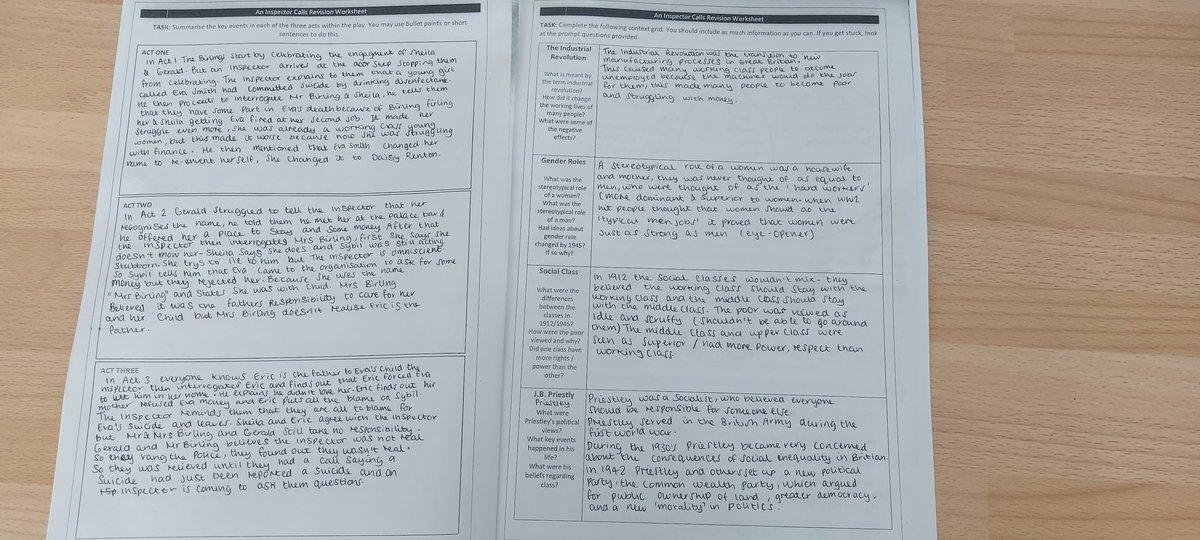 An Inspector Calls Revision Worksheet
TASK: Summarise the key events in each of the three acts within the play. You may use bullet points or short
sentences to do this.
ACT ONE
In Act 1 The Birlings start by celebrating the engagment of Sheila
& Gerald. But an inspector arrives at the door step stopping them
from celebrating. The inspector explains to them that a young girl
called Eva Smith had committed suicide by drinking disenfectant.
He then proceeds to interrogate Mr Birling & Sheila, he tells them
that they have some part in Eva's death because of Birling firling
her & Sheila getting Eva fired at her second job. It made her
struggle even more, she was already a working class young
women, but this made it worse because now she was struggling
with finance. He then mentioned that Eva Smith changed her
name to re-invent herself, she changed it to Daisy Renton.
ACT TWO
In Act 2 Gerald struggled to tell the inspector that her
recognises the name, he told them he met her at the palace bar &
he offered her a place to stay and some money After that
the inspector then interrogates Mrs Birling, first she says she
doesn't know her - Sheila says she does and Sybil was still acting
stubborn. She trys to lie to him but The inspector is omniscient.
So Sybil tells him that Eva came to the organisation to ask for some
money but they rejected her. Because she uses the name
"Mrs Birling" and states she was with child. Mrs Birling
Believed it was the fathers responsibility to care for her
and her child but Mrs Birling doesn't realise Eric is the
father.
ACT THREE
In Act 3 everyone knows Eric is the father to Eva's child the
inspector then interrogates Eric and finds out that Eric forced Eva
to let him in her home. He explains he didn't love her. Eric finds out his
mother refused Eva money and Eric puts all the blame on Sybil.
The inspector reminds them that they are all to blame for
Eva's suicide and leaves. Sheila and Eric agree with the inspector
but Mr & Mrs Birling and Gerald still take no responsibility.
Gerald and Mr Birling believes the inspector was not real
so they rang the Police, they found out they wasn't real.
So they was relieved until they had a call saying a
suicide had just been reported a suicide and an
inspector is coming to ask them questions.
An Inspector Calls Revision Worksheet
TASK: Complete the following context grid. You should include as much information as you can. If you get stuck, look
at the prompt questions provided.
The Industrial
Revolution
What is meant by
the term industrial
revolution?
How did it change
the working lives of
many people?
What were some of
the negative
effects?
The Industrial Revolution was the transition to new
manufacturing processes in Great Britain,
This caused many working class people to become
unemployed because the machines would do the jobs
for them, this made many people to become poor
and struggling with money.
Gender Roles
What was the
stereotypical role
of a woman?
What was the
stereotypical role
of a man?
Had ideas about
gender role
changed by 1945?
If so why?
A stereotypical role of a women was a housewife
and mother, they was never thought of as equal to
men, who were thought of as the 'hard workers'
(more dominant & superior to women. when WW1
hit people thought that women should do the
'typical men jobs' it proved that women were
just as strong as men (eye-opener)
Social Class
What were the
differences
between the
classes in
1912/1945?
How were the poor
viewed and why?
Did one class have
more rights /
power than the
other?
In 1912 the social classes wouldn't mix - they
believed the working class should stay with the
working class and the middle class should stay
with the middle class. The poor was viewed as
idle and scruffy (shouldn't be able to go around
them) The middle class and upper class were
seen as superior / had more power, respect than
working class
J.B. Priestly
Priestley
What were
Priestley's political
views?
What key events
happened in his
life?
What were his
beliefs regarding
class?
Priestley was a socialist, who believed everyone
should be responsible for someone else.
Priestley served in the British Army during the
first world war.
During the 1930's Priestley became very concerned
about the consequences of social inequality in Britian.
In 1942 Priestley and others set up a new political
Party, the common wealth party, which argued
for public ownership of land, greater democracy,
and a new 'morality' in politics.